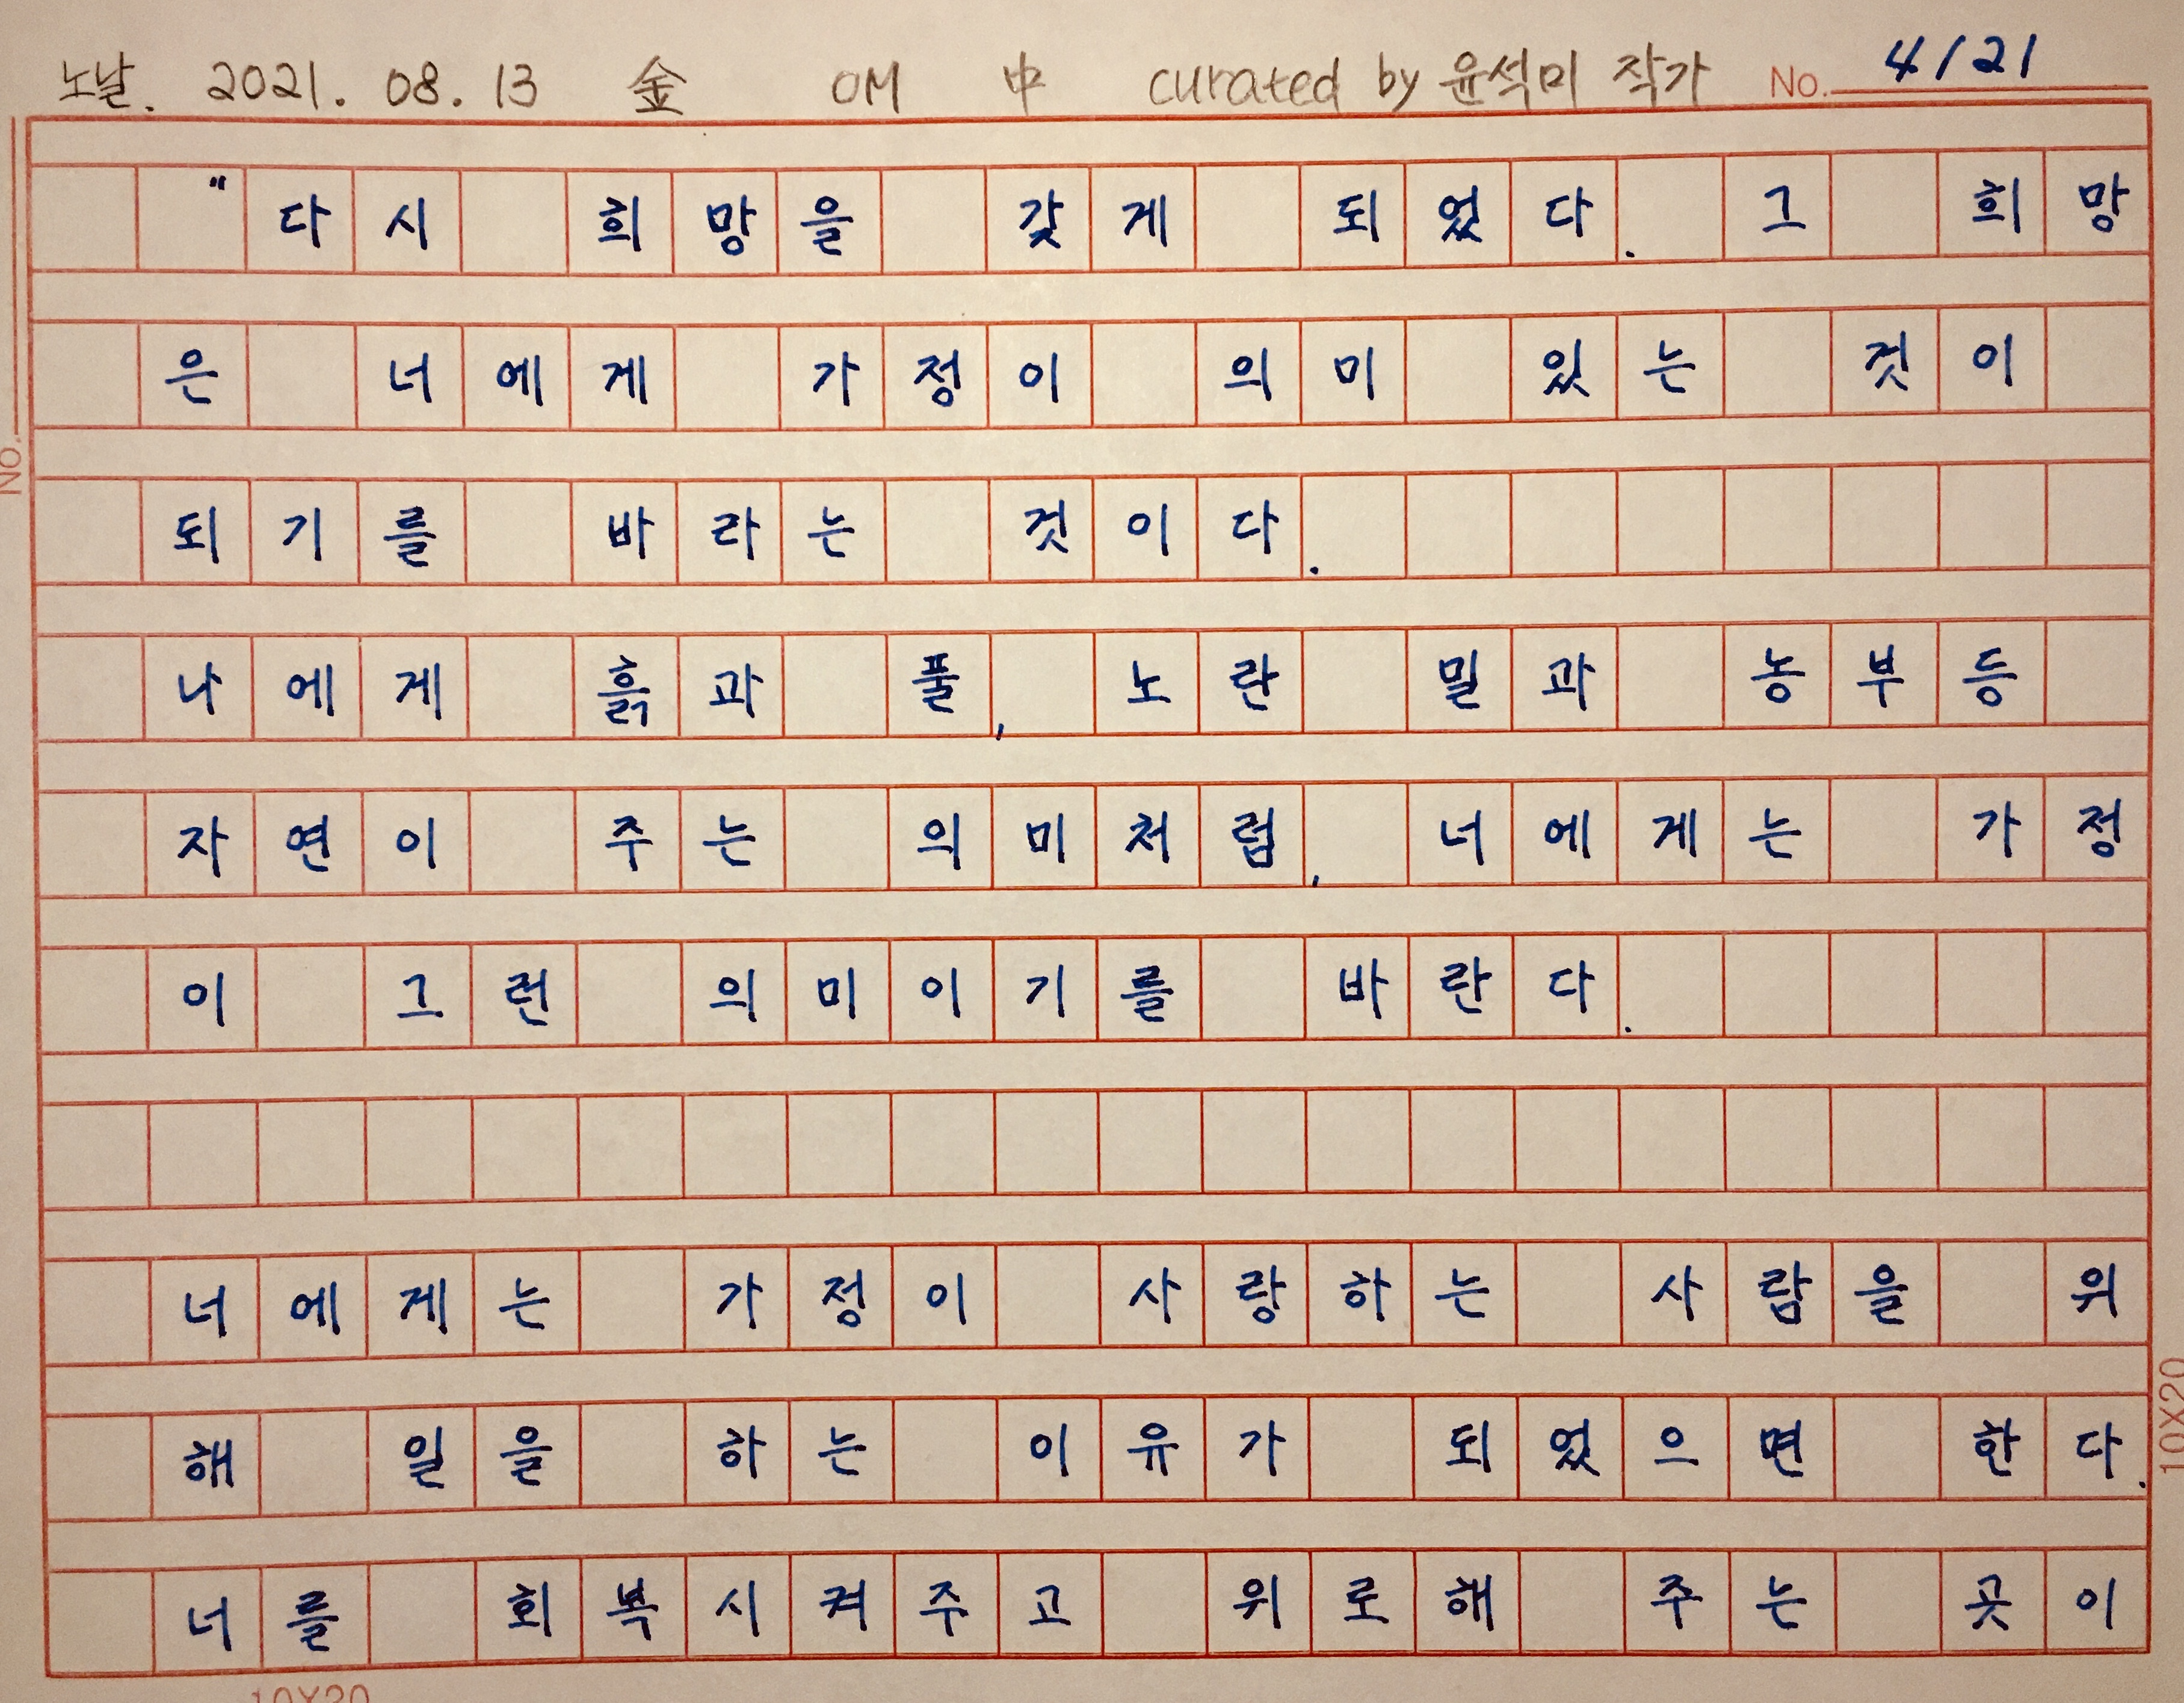 노날. 2021. 08. 13 金 OM 中 curated by 윤석미 작가 No. 4/21
"다시 희망을 갖게 되었다. 그 희망
은 너에게 가정이 의미 있는 것이
되기를 바라는 것이다.
나에게 흙과 풀, 노란 밀과 농부 등
자연이 주는 의미처럼, 너에게는 가정
이 그런 의미이기를 바란다.
너에게는 가정이 사랑하는 사람을 위
해 일을 하는 이유가 되었으면 한다.
너를 회복시켜주고 위로해 주는 곳이
No.
10X20
10X20